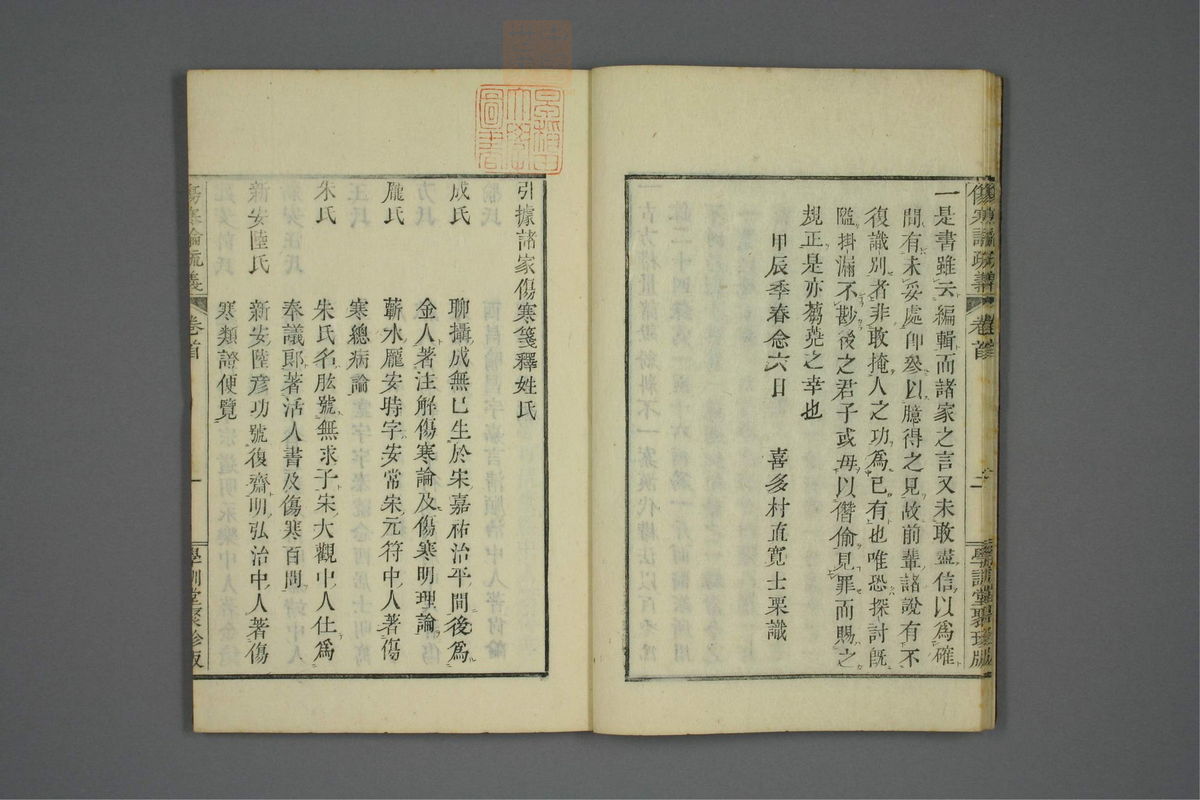 一是書雖云編輯而諸家之言又未敢盡信以爲確
間有未妥處卽參以臆得之見故前輩諸說有不
復識別者非敢掩人之功爲己有也唯恐探討旣
隘掛漏不尠後之君子或毋以僭偷見罪而賜之
規正是亦蒭蕘之幸也
甲辰季春念六日　喜多村直寬士栗識
傷寒論疏義　卷首　二　學訓堂聚珍版
引據諸家傷寒箋釋姓氏
成氏　聊攝成無已生於宋嘉祐治平間後爲
金人著注解傷寒論及傷寒明理論
龐氏　蘄水龐安時字安常宋元符中人著傷
寒總病論
朱氏　朱氏名肱號無求子宋大觀中人仕爲
奉議郎著活人書及傷寒百問
新安陸氏　新安陸彥功號復齋明弘治中人著傷
寒類證便覽
傷寒論疏義　卷首　一　學訓堂聚珍版
圖書